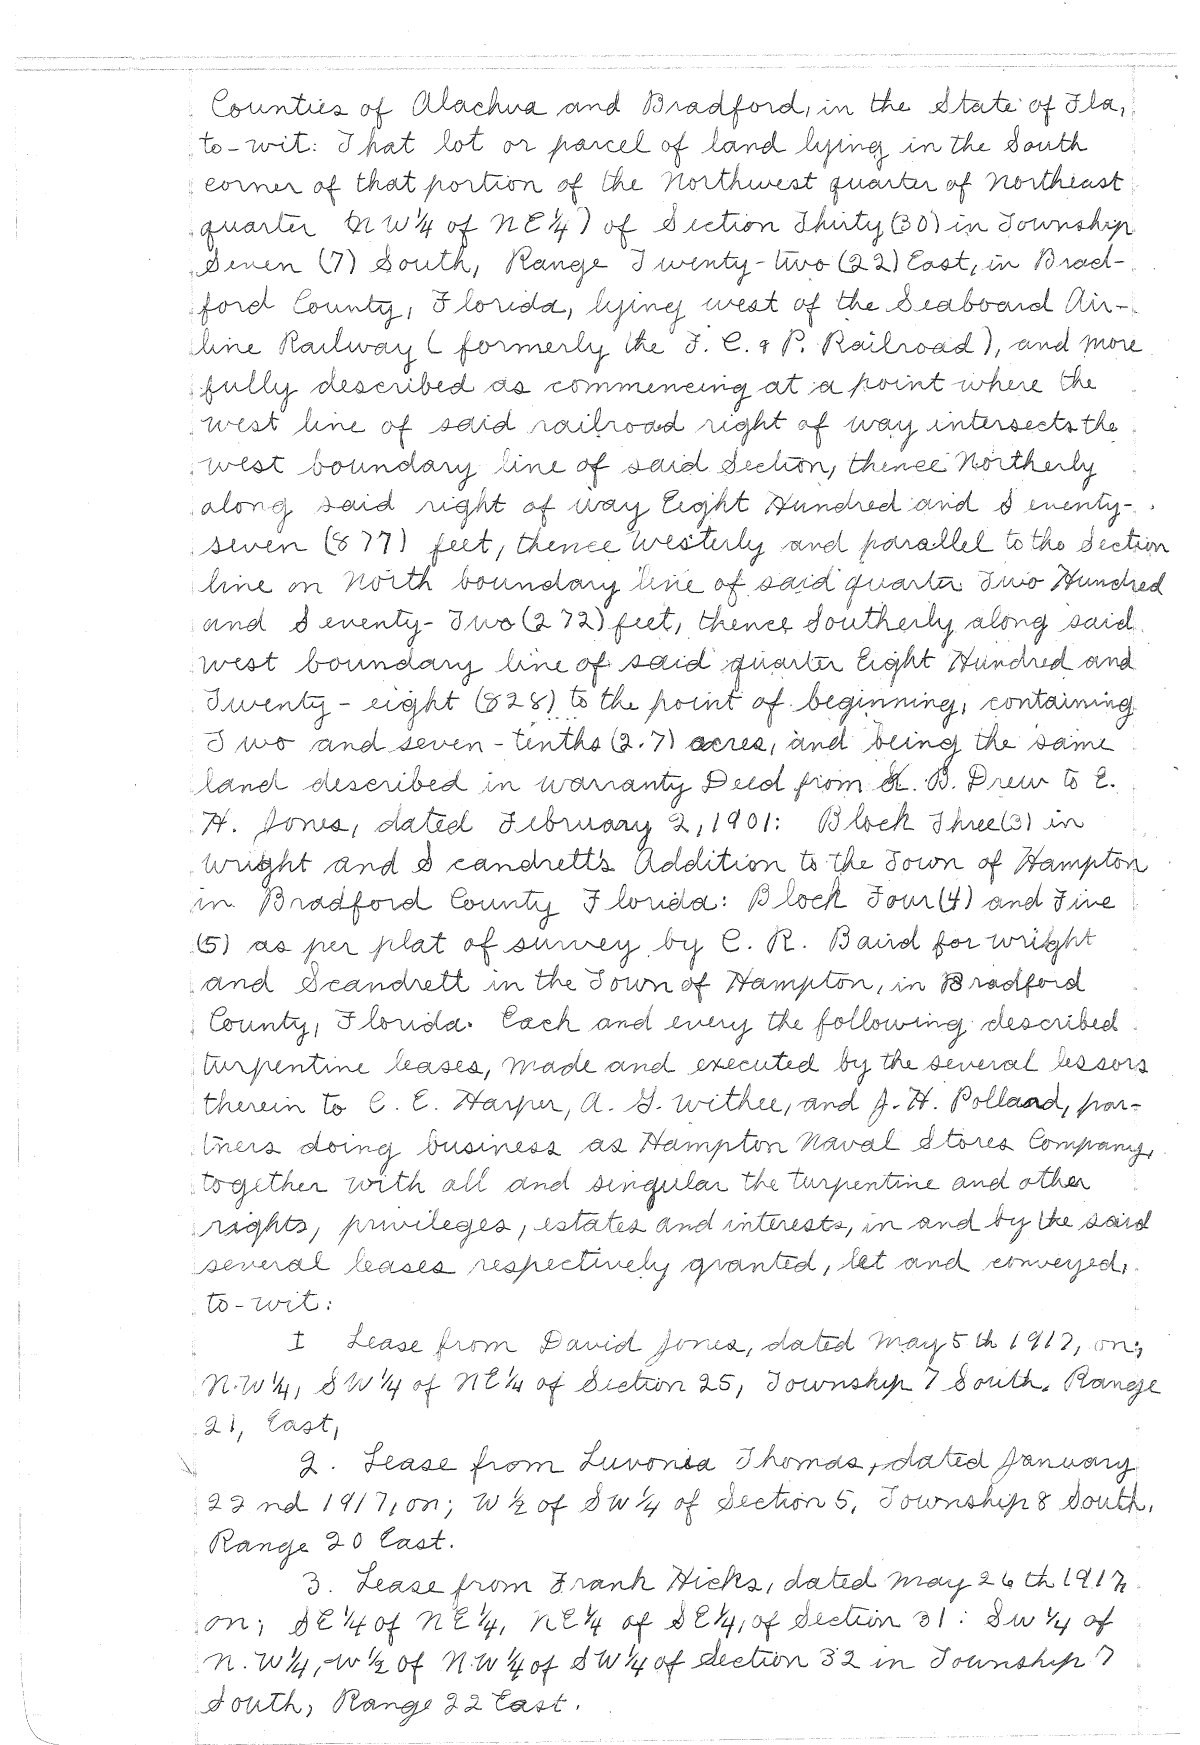 Counties of Alachua and Bradford, in the State of Fla,
to-wit: That lot or parcel of land lying in the South
corner of that portion of the Northwest quarter of Northeast
quarter (NW¼ of NE¼) of Section Thirty (30) in Township
Seven (7) South, Range Twenty-two (22) East, in Brad-
ford County, Florida, lying west of the Seaboard Air-
line Railway (formerly the F. C. & P. Railroad), and more
fully described as commencing at a point where the
west line of said railroad right of way intersects the
west boundary line of said Section, thence Northerly
along said right of way Eight Hundred and Seventy-
seven (877) feet, thence Westerly and parallel to the Section
line on North boundary line of said quarter Two Hundred
and Seventy-Two (272) feet, thence Southerly along said
west boundary line of said quarter Eight Hundred and
Twenty-eight (828) to the point of beginning, containing
Two and seven-tenths (2.7) acres, and being the same
land described in warranty Deed from K. B. Drew to E.
H. Jones, dated February 2, 1901: Block Three (3) in
Wright and Scandrett's Addition to the Town of Hampton
in Bradford County Florida: Block Four (4) and Five
(5) as per plat of survey by C. R. Baird for Wright
and Scandrett in the Town of Hampton, in Bradford
County, Florida. Each and every the following described
turpentine leases, made and executed by the several lessors
therein to C. E. Harper, A. G. Withee, and J. H. Polland, par-
tners doing business as Hampton Naval Stores Company,
together with all and singular the turpentine and other
rights, privileges, estates and interests, in and by the said
several leases respectively granted, let and conveyed,
to-wit:
1 Lease from David Jones, dated May 5th 1917, on;
N.W¼, SW¼ of NE¼ of Section 25, Township 7 South. Range
21, East,
2. Lease from Luvonia Thomas, dated January
22nd 1917, on; W½ of SW¼ of Section 5, Township 8 South,
Range 20 East.
3. Lease from Frank Hicks, dated May 26th 1917,
on; SE¼ of NE¼, NE¼ of SE¼, of Section 31: SW¼ of
N.W¼, W½ of N.W¼ of SW¼ of Section 32 in Township 7
South, Range 22 East.